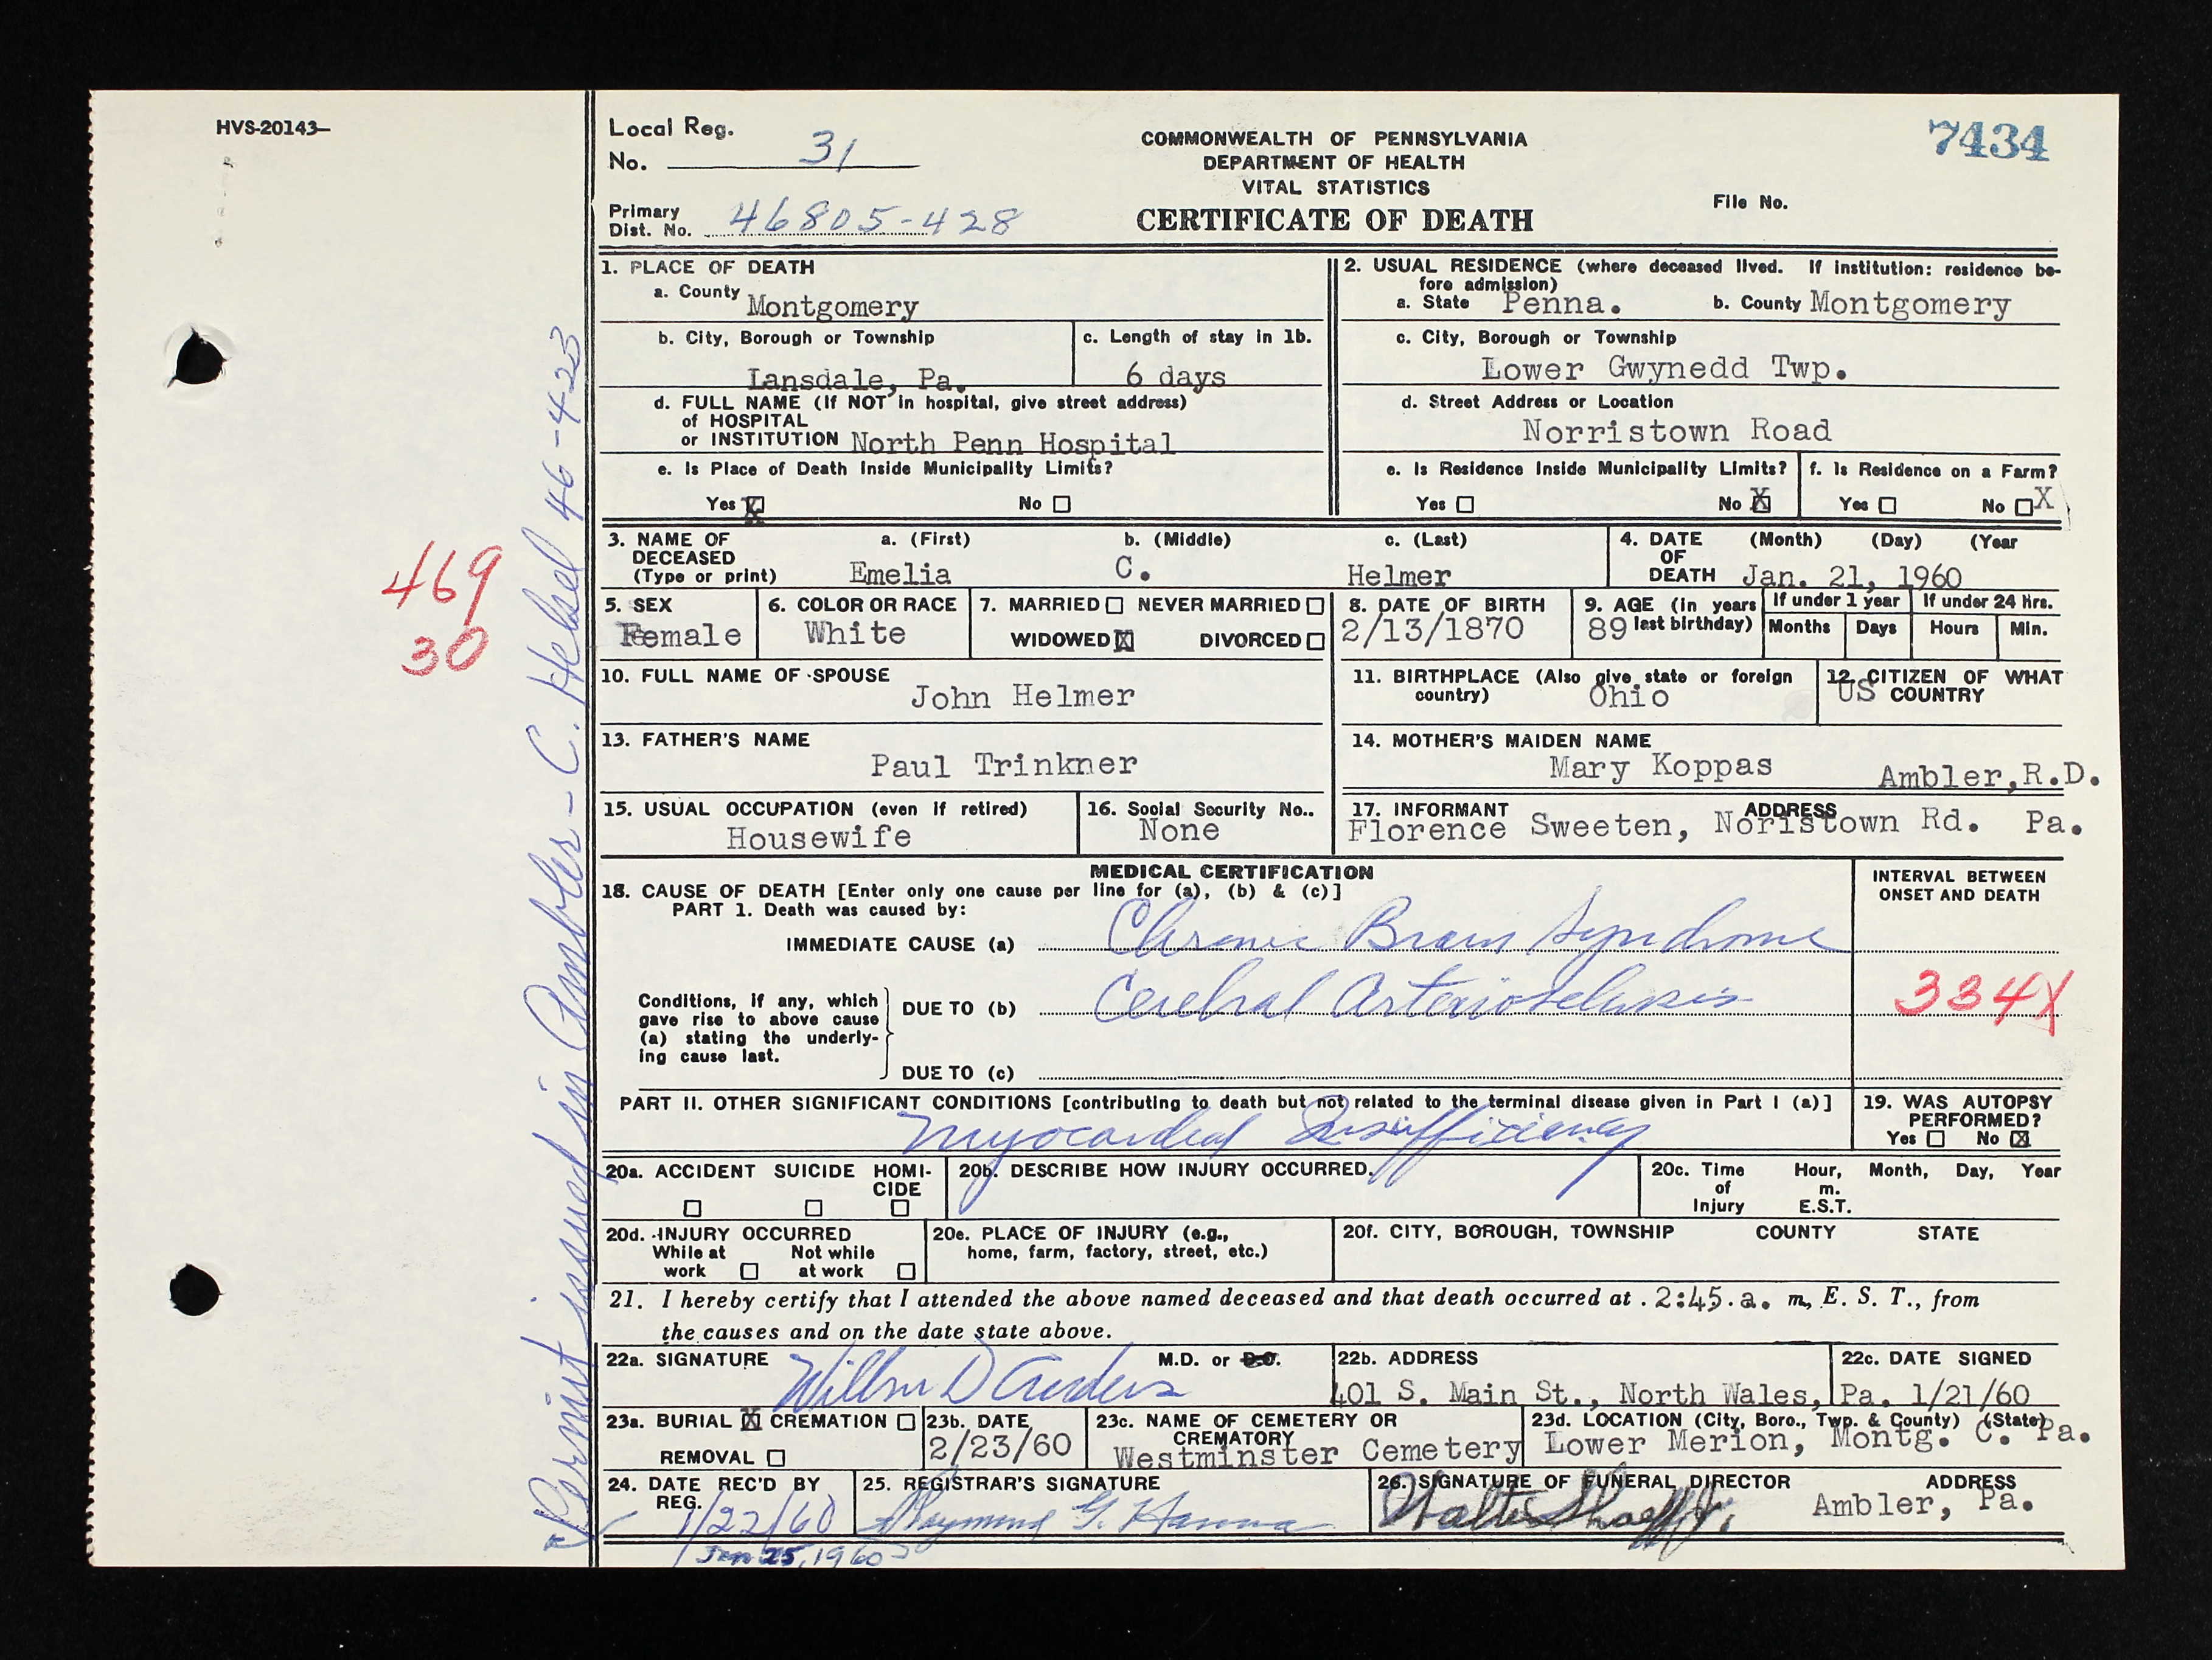 HVS-20143-
Local Reg.
No. 31
COMMONWEALTH OF PENNSYLVANIA
DEPARTMENT OF HEALTH
VITAL STATISTICS
CERTIFICATE OF DEATH
7434
File No.
Primary
Dist. No. 46805-428
1. PLACE OF DEATH
a. County Montgomery
b. City, Borough or Township
Lansdale, Pa.
c. Length of stay in 1b.
6 days
d. FULL NAME (If NOT in hospital, give street address)
of HOSPITAL
or INSTITUTION North Penn Hospital
e. Is Place of Death Inside Municipality Limits?
Yes X No
2. USUAL RESIDENCE (where deceased lived. If institution: residence be-
fore admission)
a. State Penna. b. County Montgomery
c. City, Borough or Township
Lower Gwynedd Twp.
d. Street Address or Location
Norristown Road
e. Is Residence Inside Municipality Limits?
Yes No X
f. Is Residence on a Farm?
Yes No X
3. NAME OF DECEASED (Type or print)
a. (First) b. (Middle) c. (Last)
Emelia C. Helmer
4. DATE OF DEATH (Month) (Day) (Year
Jan. 21, 1960
5. SEX
Female
6. COLOR OR RACE
White
7. MARRIED NEVER MARRIED
WIDOWED X DIVORCED
8. DATE OF BIRTH
2/13/1870
9. AGE (In years last birthday)
89
If under 1 year
Months Days
If under 24 hrs.
Hours Min.
10. FULL NAME OF SPOUSE
John Helmer
11. BIRTHPLACE (Also give state or foreign country)
Ohio
12. CITIZEN OF WHAT COUNTRY
US
13. FATHER'S NAME
Paul Trinkner
14. MOTHER'S MAIDEN NAME
Mary Koppas
15. USUAL OCCUPATION (even if retired)
Housewife
16. Social Security No..
None
17. INFORMANT ADDRESS
Ambler,R.D.
Florence Sweeten, Noristown Rd. Pa.
MEDICAL CERTIFICATION
18. CAUSE OF DEATH [Enter only one cause per line for (a), (b) & (c)]
PART 1. Death was caused by:
INTERVAL BETWEEN
ONSET AND DEATH
IMMEDIATE CAUSE (a) Chronic Brain Syndrome
Conditions, if any, which
gave rise to above cause
(a) stating the underly-
ing cause last.
DUE TO (b) Cerebral Arteriosclerosis
334X
DUE TO (c)
PART II. OTHER SIGNIFICANT CONDITIONS [contributing to death but not related to the terminal disease given in Part I (a)]
Myocardial Insufficiency
19. WAS AUTOPSY
PERFORMED?
Yes No X
20a. ACCIDENT SUICIDE HOMI-
CIDE
20b. DESCRIBE HOW INJURY OCCURRED.
20c. Time of Injury Hour, Month, Day, Year
m.
E.S.T.
20d. INJURY OCCURRED
While at work Not while at work
20e. PLACE OF INJURY (e.g.,
home, farm, factory, street, etc.)
20f. CITY, BOROUGH, TOWNSHIP COUNTY STATE
21. I hereby certify that I attended the above named deceased and that death occurred at . 2:45.a. m, E. S. T., from
the causes and on the date state above.
22a. SIGNATURE Wilbur D M.D. or D.O.
22b. ADDRESS
401 S. Main St., North Wales, Pa.
22c. DATE SIGNED
1/21/60
23a. BURIAL X CREMATION
REMOVAL
23b. DATE
2/23/60
23c. NAME OF CEMETERY OR
CREMATORY
Westminster Cemetery
23d. LOCATION (City, Boro., Twp. & County) (State)
Lower Merion, Montg. C. Pa.
24. DATE REC'D BY
REG.
1/22/60
Jan 25, 1960
25. REGISTRAR'S SIGNATURE
Raymond G. Hanna
26. SIGNATURE OF FUNERAL DIRECTOR ADDRESS
Walter Shaeff Jr. Ambler, Pa.
469
30
Permit issued in Ambler - C. Helsel 46-423